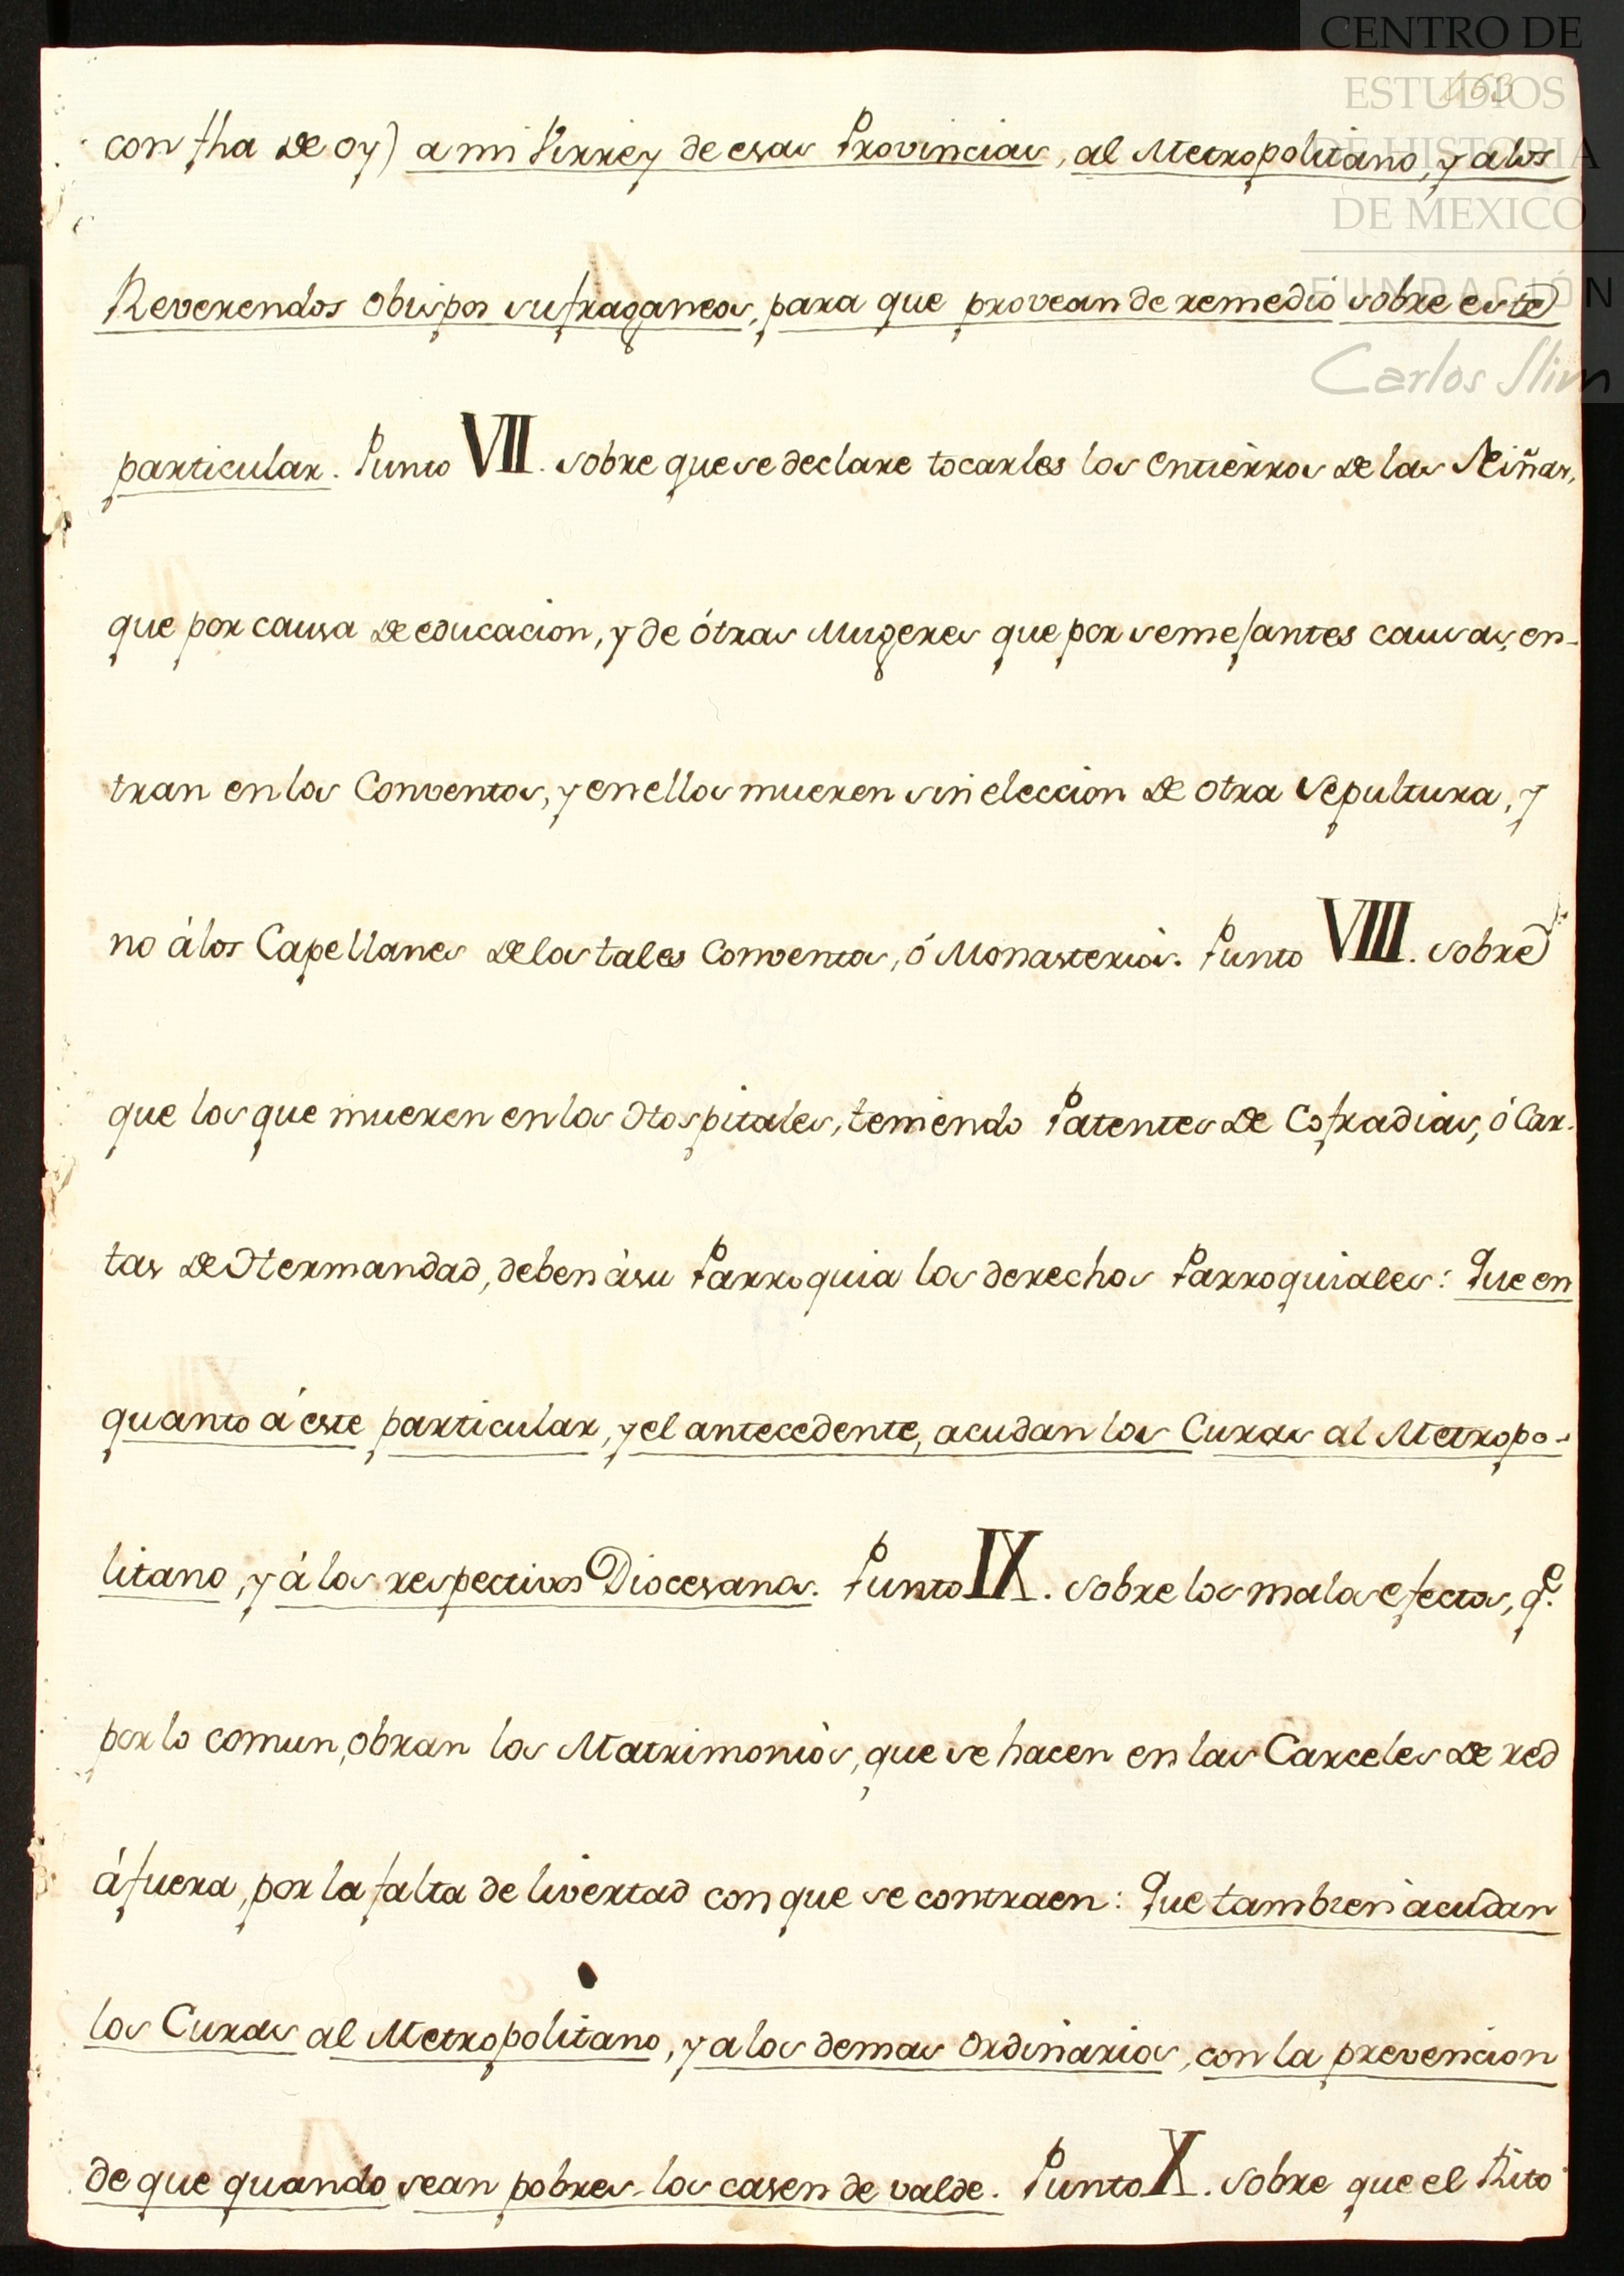 CENTRO DE
ESTUDIOS
DE HISTORIA
DE MEXICO
FUNDACIÓN
Carlos Slim
463
con fha de oy) a mi Virrey de esas Provincias, al Metropolitano, y a los
Reverendos Obispos sufraganeos, para que provean de remedio sobre este
particular. Punto VII. sobre que se declare tocarles los entierros de las Niñas,
que por causa de educacion, y de ótras Mugeres que por semejantes causas, en-
tran en los Conventos, y en ellos mueren sin eleccion de otra Sepultura, y
no álos Capellanes de los tales Conventos, ó Monasterios. Punto VIII. sobre
que los que mueren en los Hospitales, teniendo Patentes de Cofradias, ó Car-
tas de Hermandad, deben ásu Parroquia los derechos Parroquiales: Que en
quanto á este particular, y el antecedente, acudan los Curas al Metropo-
litano, y á los respectivos Diocesanos. Punto IX. sobre los malos efectos, q.e
por lo comun, obran los Matrimonios, que se hacen en las Carceles de red
áfuera, por la falta de livertad con que se contraen: Que tambien acudan
los Curas al Metropolitano, y a los demas Ordinarios, con la prevencion
de que quando sean pobres los casen de valde. Punto X. sobre que el Rito